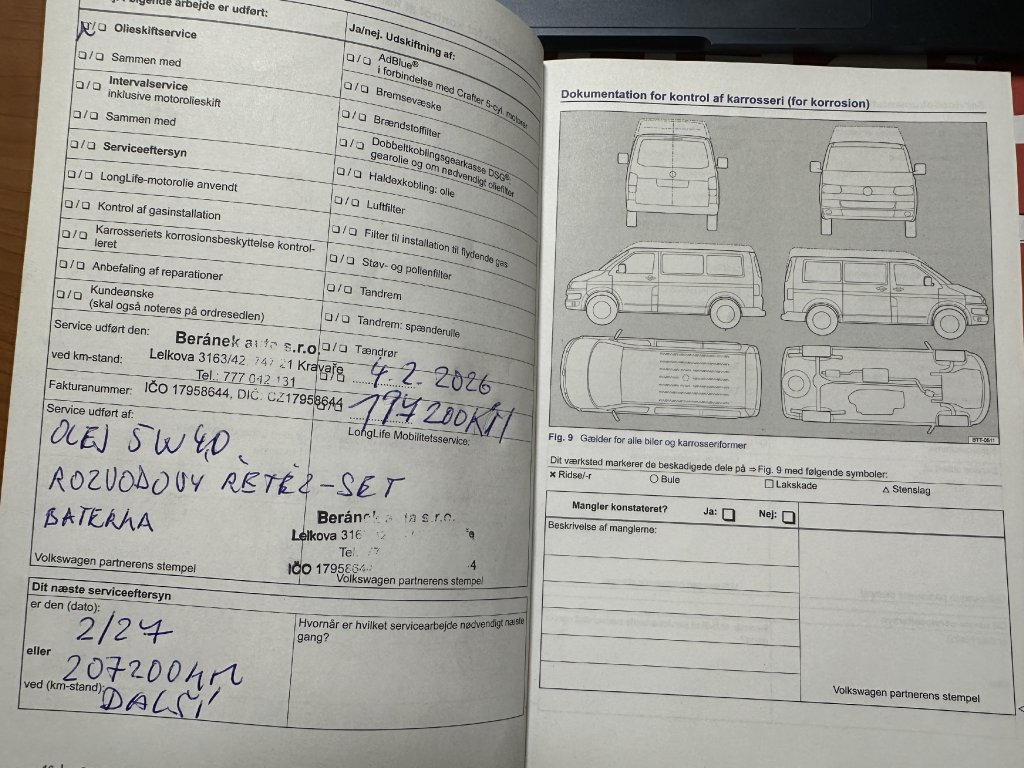 følgende arbejde er udført:
Ja/nej. Udskiftning af:
❏/❏ Olieskiftservice
Sammen med
❏/❏ Intervalservice
inklusive motorolieskift
❏/❏ Sammen med
❏/❏ Serviceeftersyn
❏/❏ LongLife-motorolie anvendt
❏/❏ Kontrol af gasinstallation
❏/❏ Karrosseriets korrosionsbeskyttelse kontrol-
leret
❏/❏ Anbefaling af reparationer
❏/❏ Kundeønske
(skal også noteres på ordresedlen)
❏/❏ AdBlue®
i forbindelse med Crafter 5-cyl. motorer
❏/❏ Bremsevæske
❏/❏ Brændstoffilter
❏/❏ Dobbeltkoblingsgearkasse DSG®:
gearolie og om nødvendigt oliefilter
❏/❏ Haldexkobling: olie
❏/❏ Luftfilter
❏/❏ Filter til installation til flydende gas
❏/❏ Støv- og pollenfilter
❏/❏ Tandrem
❏/❏ Tandrem: spænderulle
❏/❏ Tændrør
Service udført den:
ved km-stand:
Fakturanummer:
Beránek auto s.r.o.
Lelkova 3163/42 747 21 Kravaře
Tel.: 777 042 131
IČO 17958644, DIČ. CZ17958644
4 2. 2026
197200KM
LongLife Mobilitetsservice:
Service udført af:
OLEJ 5W40
ROZVODOVÝ ŘETĚZ-SET
BATERKA
Beránek auto s.r.o.
Lelkova 316
Tel.
IČO 1795864
4
Volkswagen partnerens stempel
Volkswagen partnerens stempel
Dit næste serviceeftersyn
er den (dato):
2/27
eller
207200KM
ved (km-stand):
DALŠÍ
Hvornår er hvilket servicearbejde nødvendigt næste
gang?
Dokumentation for kontrol af karrosseri (for korrosion)
BTT-0611
Fig. 9 Gælder for alle biler og karrosseriformer
Dit værksted markerer de beskadigede dele på ⇒ Fig. 9 med følgende symboler:
× Ridse/-r ○ Bule □ Lakskade △ Stenslag
Mangler konstateret? Ja: ❏ Nej: ❏
Beskrivelse af manglerne:
Volkswagen partnerens stempel